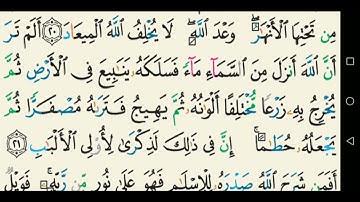 مِن تَحْتِهَا ٱلْأَنْهَٰرُ ۖ وَعْدَ ٱللَّهِ ۖ لَا يُخْلِفُ ٱللَّهُ ٱلْمِيعَادَ ٢٠ أَلَمْ تَرَ
أَنَّ ٱللَّهَ أَنزَلَ مِنَ ٱلسَّمَآءِ مَآءً فَسَلَكَهُۥ يَنَٰبِيعَ فِى ٱلْأَرْضِ ثُمَّ
يُخْرِجُ بِهِۦ زَرْعًا مُّخْتَلِفًا أَلْوَٰنُهُۥ ثُمَّ يَهِيجُ فَتَرَىٰهُ مُصْفَرًّا ثُمَّ
يَجْعَلُهُۥ حُطَٰمًا ۚ إِنَّ فِى ذَٰلِكَ لَذِكْرَىٰ لِأُو۟لِى ٱلْأَلْبَٰبِ ٢١
أَفَمَن شَرَحَ ٱللَّهُ صَدْرَهُۥ لِلْإِسْلَٰمِ فَهُوَ عَلَىٰ نُورٍ مِّن رَّبِّهِۦ ۚ فَوَيْلٌ